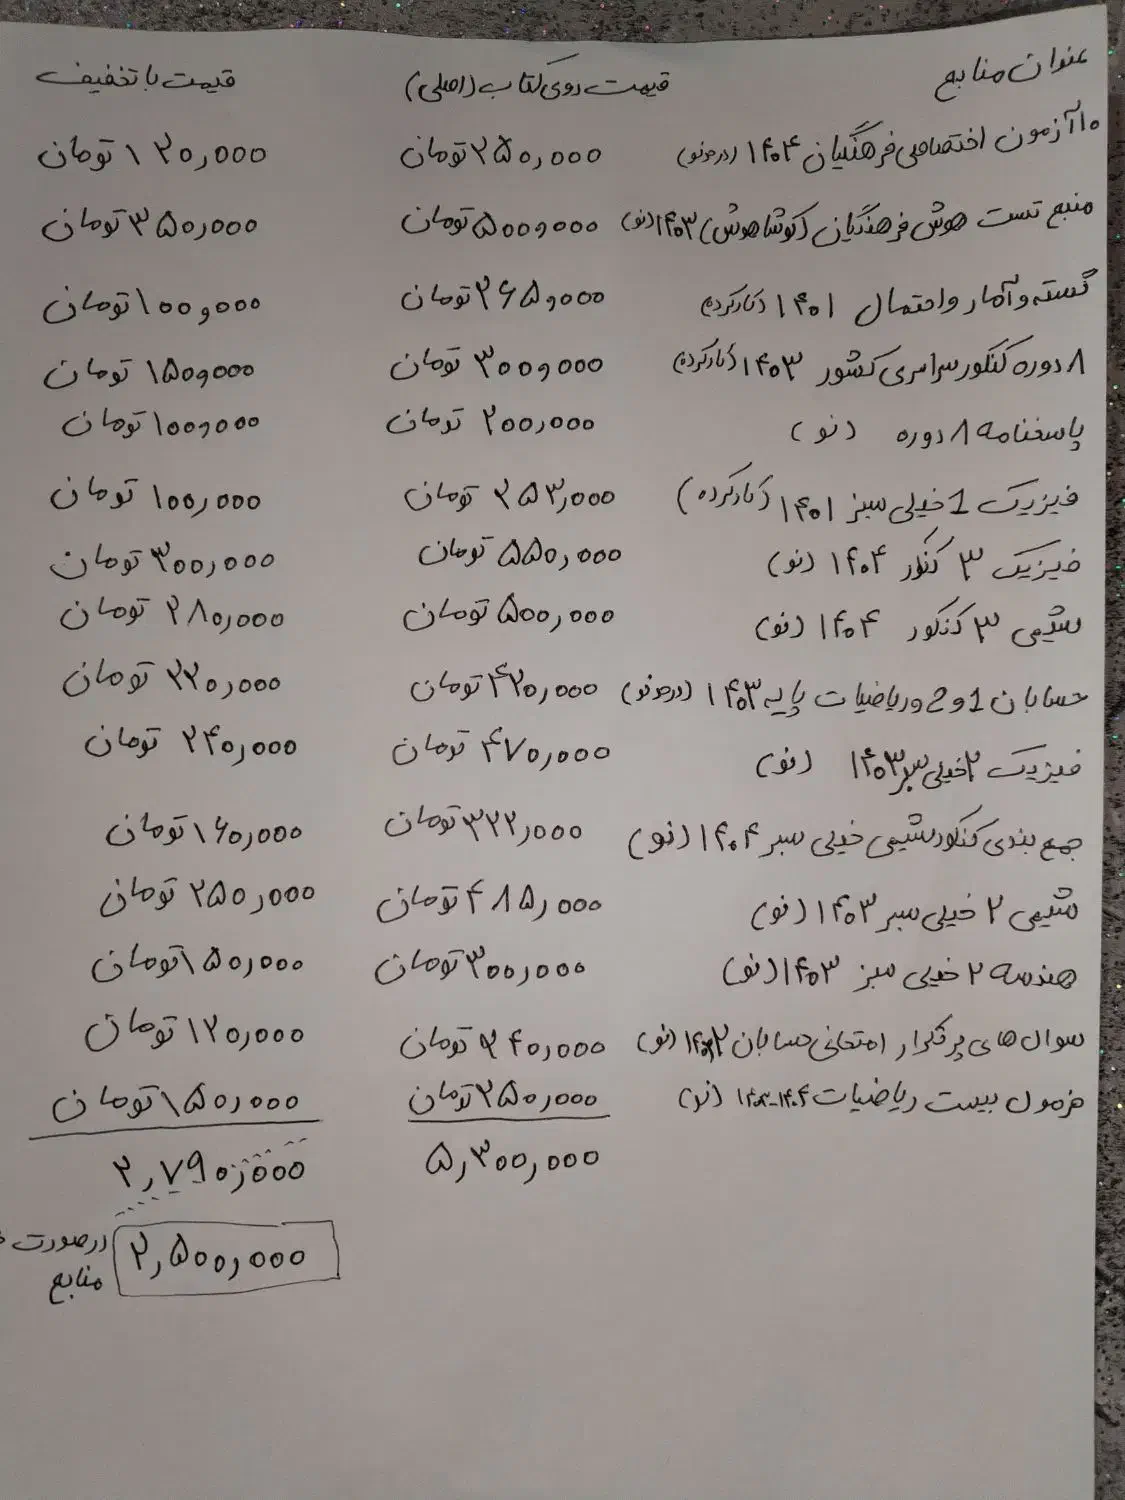 عنوان منابع قیمت روی کتاب (اصلی) قیمت با تخفیف
۱۰ آزمون اختصاصی فرهنگیان ۱۴۰۴ (درحد نو) ۲۵۰,۰۰۰ تومان ۱۳۰,۰۰۰ تومان
منبع تست هوش فرهنگیان (کوشا هوش) ۱۴۰۳ (نو) ۵۰۰,۰۰۰ تومان ۳۵۰,۰۰۰ تومان
گسسته و آمار و احتمال ۱۴۰۱ (کارکرده) ۲۶۵,۰۰۰ تومان ۱۰۰,۰۰۰ تومان
۸ دوره کنکور سراسری کشور ۱۴۰۳ (کارکرده) ۳۰۰,۰۰۰ تومان ۱۵۰,۰۰۰ تومان
پاسخنامه ۸ دوره (نو) ۲۰۰,۰۰۰ تومان ۱۰۰,۰۰۰ تومان
فیزیک 1 خیلی سبز ۱۴۰۱ (کارکرده) ۲۵۳,۰۰۰ تومان ۱۰۰,۰۰۰ تومان
فیزیک ۳ کنکور ۱۴۰۴ (نو) ۵۵۰,۰۰۰ تومان ۳۰۰,۰۰۰ تومان
شیمی ۳ کنکور ۱۴۰۴ (نو) ۵۰۰,۰۰۰ تومان ۲۸۰,۰۰۰ تومان
حسابان 1 و 2 و ریاضیات پایه ۱۴۰۳ (درحد نو) ۴۲۰,۰۰۰ تومان ۲۲۰,۰۰۰ تومان
فیزیک ۲ خیلی سبز ۱۴۰۳ (نو) ۴۷۰,۰۰۰ تومان ۲۴۰,۰۰۰ تومان
جمع بندی کنکور شیمی خیلی سبز ۱۴۰۴ (نو) ۳۲۲,۰۰۰ تومان ۱۶۰,۰۰۰ تومان
شیمی ۲ خیلی سبز ۱۴۰۳ (نو) ۴۸۵,۰۰۰ تومان ۲۵۰,۰۰۰ تومان
هندسه ۲ خیلی سبز ۱۴۰۳ (نو) ۳۰۰,۰۰۰ تومان ۱۵۰,۰۰۰ تومان
سوال های پر تکرار امتحانی حسابان ۲ (نو) ۲۴۰,۰۰۰ تومان ۱۲۰,۰۰۰ تومان
فرمول بیست ریاضیات ۱۴۰۴-۱۴۰۳ (نو) ۲۵۰,۰۰۰ تومان ۱۵۰,۰۰۰ تومان
۵,۳۰۰,۰۰۰ ۲,۷۹۰,۰۰۰
درصورت ۲,۵۰۰,۰۰۰
منابع